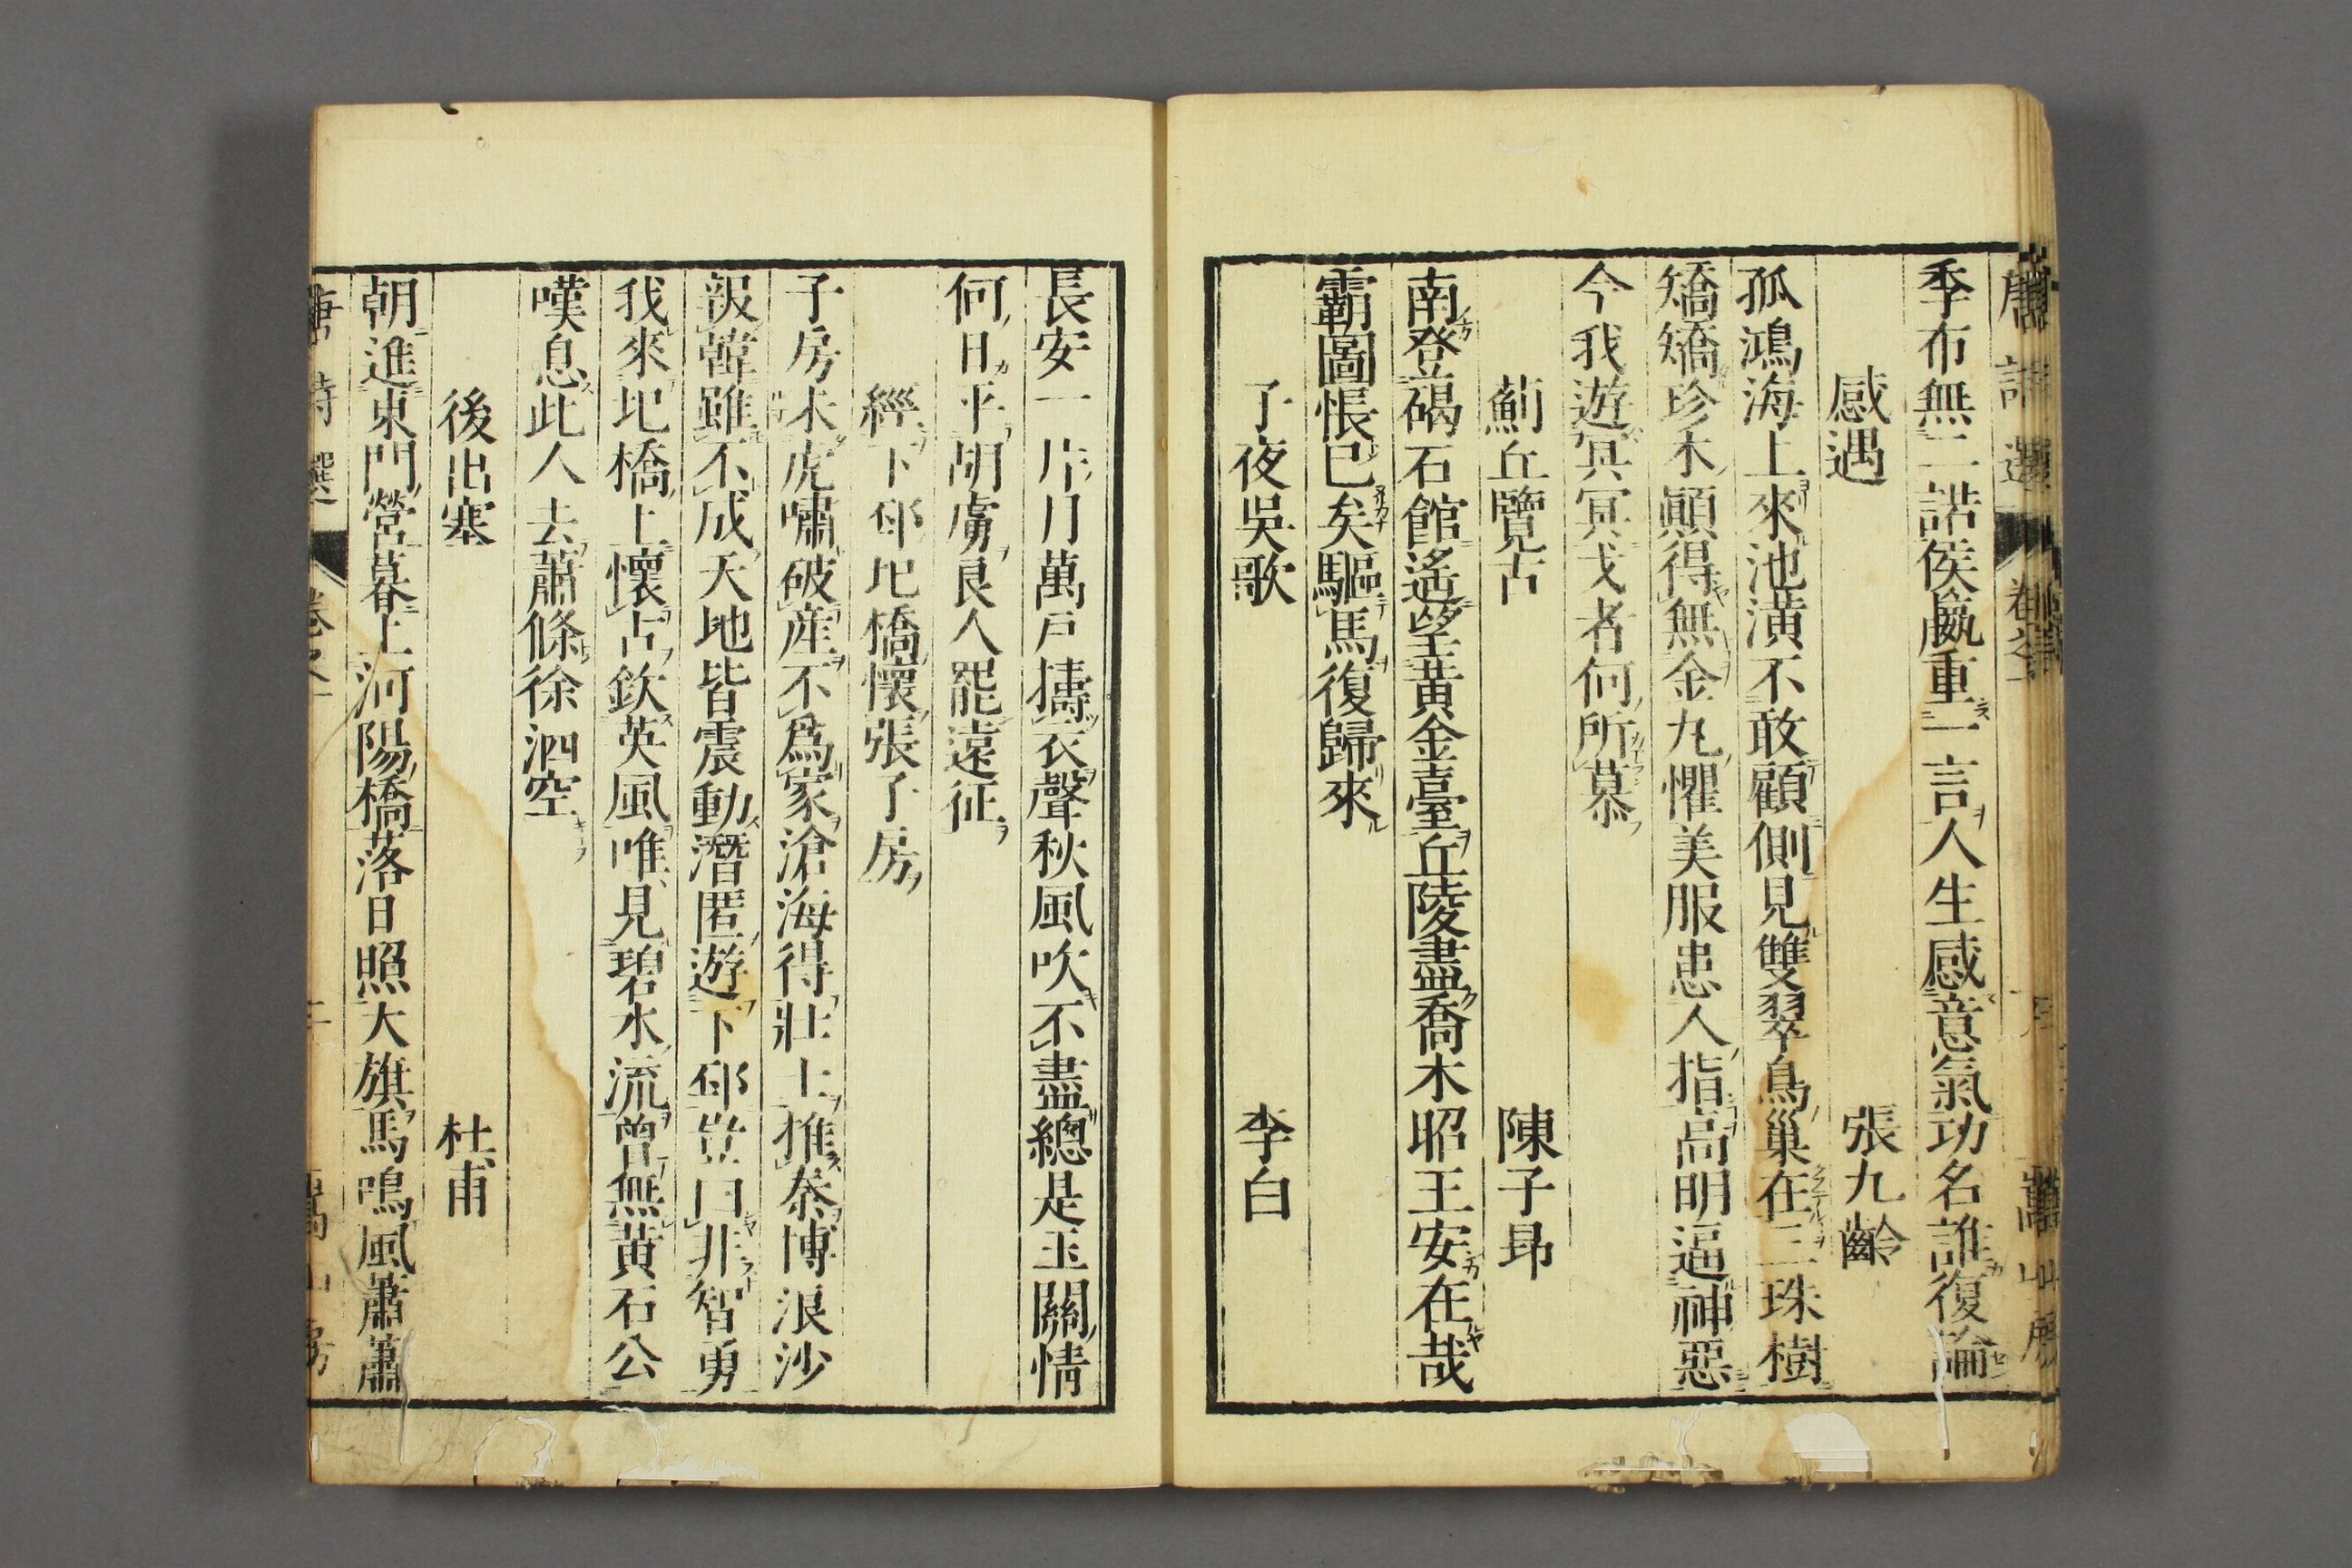 季布無二諾侯嬴重一言人生感意氣功名誰復論
感遇 張九齡
孤鴻海上來池潢不敢顧側見雙翠鳥巢在三珠樹
矯矯珍木顚得無金丸懼美服患人指高明逼神惡
今我遊冥冥弋者何所慕
薊丘覽古 陳子昻
南登碣石館遙望黃金臺丘陵盡喬木昭王安在哉
霸圖悵已矣驅馬復歸來
子夜吳歌 李白
長安一片月萬戶擣衣聲秋風吹不盡總是玉關情
何日平胡虜良人罷遠征
經下邳圯橋懷張子房
子房未虎嘯破產不爲家滄海得壯士推秦博浪沙
報韓雖不成天地皆震動潛匿遊下邳豈曰非智勇
我來圯橋上懷古欽英風唯見碧水流曾無黃石公
嘆息此人去蕭條徐泗空
後出塞 杜甫
朝進東門營暮上河陽橋落日照大旗馬鳴風蕭蕭
唐詩選 卷之一